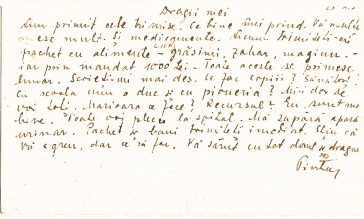 Dragii mei
Am primit cele trimise. Ce bine îmi prind. Vă mulțu
mesc mult. Și medicamente. Acum trimiteți-mi
pachet cu alimente cu grăsimi, zahăr,
iar prin mandat 1000 lei. Toate aceste se primesc
Scrieți-mi mai des. Ce fac copiii? Sănătoși
cu școala cum o duc și cu pioneria? Mi-i dor de
voi toți. Marioara ce face? Recursul? Eu sunt
bine. Poate voi pleca la spital. Mă supără apara
urinar. Pachet și bani trimiteți imediat. Știu că
vă e greu, dar ce să fac. Vă sărut cu tot dorul și dragos